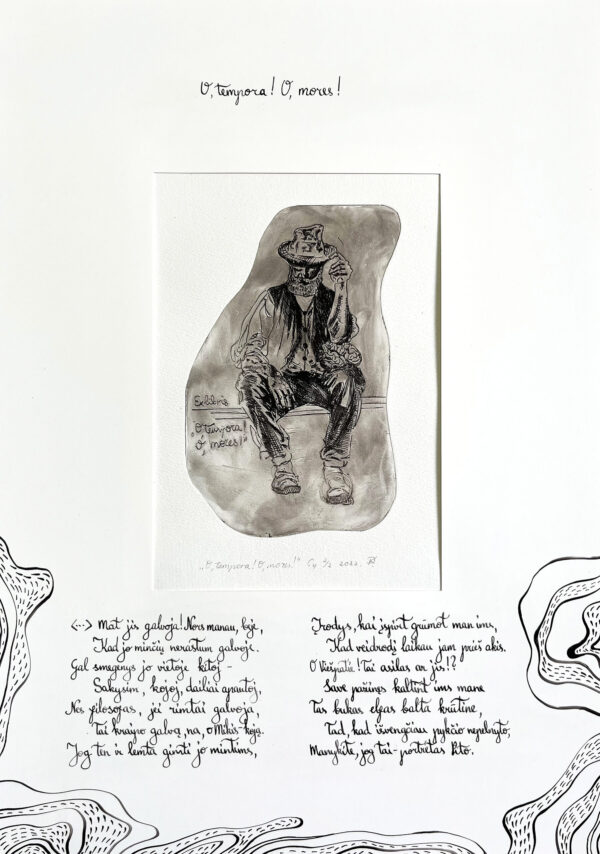 O, tempora! O, mores!
Exlibris
„O tempora!
O, mores!"
„O, tempora! O, mores!" C4 2022.
<...> Mat jis galvoja! Nors manau, beje,
Kad jo minčių nerastum galvoje.
Gal smegenys jo vietoje kitoj -
Sakysim, kojoj, dailiai apautoj,
Nes filosofas, jei rimtai galvoja,
Tai kraipo galvą, na, o Milis - koją.
Jog ten ir lemta gimti jo mintims,
Įrodys, kai įspirt grūmot man ims,
Kad veidrodį laikau jam prieš akis.
O Viešpatie! Tai asilas ar jis!?
Save pažinęs kaltint ims mane
Tas bukas elfas balta krūtine,
Tad, kad išvengčiau pykčio nepelnyto,
Manykite, jog tai - portretas kito.